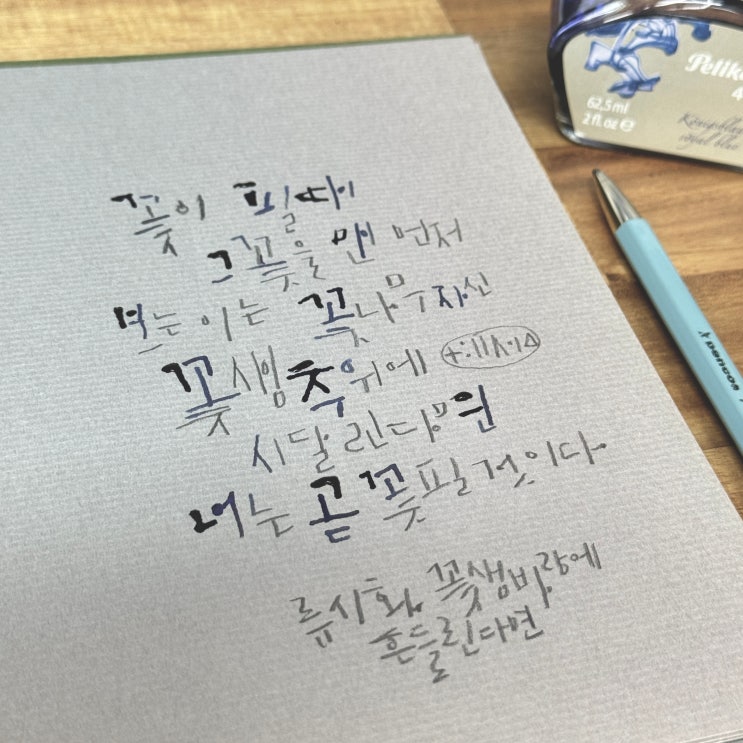 꽃이 필 때
그 꽃을 맨 먼저
보는 이는 꽃나무 자신
꽃샘추위에
시달린다면
너는 곧 꽃 필 것이다
류시화, 꽃샘바람에
흔들린다면
Pelik
4
62,5ml
2 fl. oz e
Königsblau
royal blue
pencos